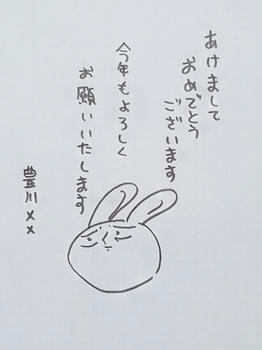 あけまして
おめでとう
ございます
今年もよろしく
お願いいたします
豊川××